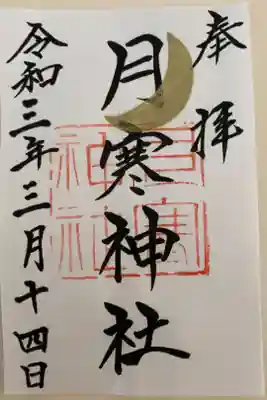 奉拝
月寒神社
令和三年三月十四日
月寒
神社